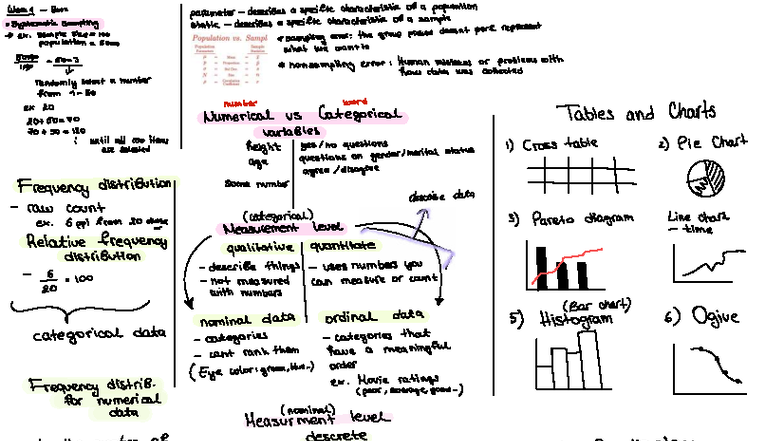 Week 1 -
Systematic Sampling
→ ex. Sample size = 100
population = 5000
5000
100
= 50
Randomly select a number
from 1 - 50
ex 20
20 + 50 = 70
70 + 50 = 120
until all 100 items
are selected
parameter - describes a specific characteristic of a population
static - describes a specific characteristic of a sample
Population vs. Sampl
* sampling error: the group
represent
what we want
* nonsampling error: Human mistakes or problems with
how data was collected
number
word
Numerical vs Categorical
variables
height
age
some number
yes/no questions
questions on gender/marital status
agree/disagree
Frequency distribution
- raw count
ex. 6 ppl from 20 chose
Relative frequency
distribution
- 6
20
= 100
categorical data
Frequency distrib.
for numerical
data
describe data
(categorical)
Measurement level
qualitative
- describe things
- not measured
with numbers
quantitate
- uses numbers you
can measure or count
nominal data
- categories
- cant rank them
(Eye color: green, blue..)
ordinal data
- categories that
have a meaningful
order
ex. Movie ratings
(poor, average, good..)
(nominal)
Measurment level
descrete
Tables and Charts
1) Cross table
2) Pie Chart
3) Pareto diagram
Line chart
- time
(Bar chart)
5) Histogram
6) Ogive